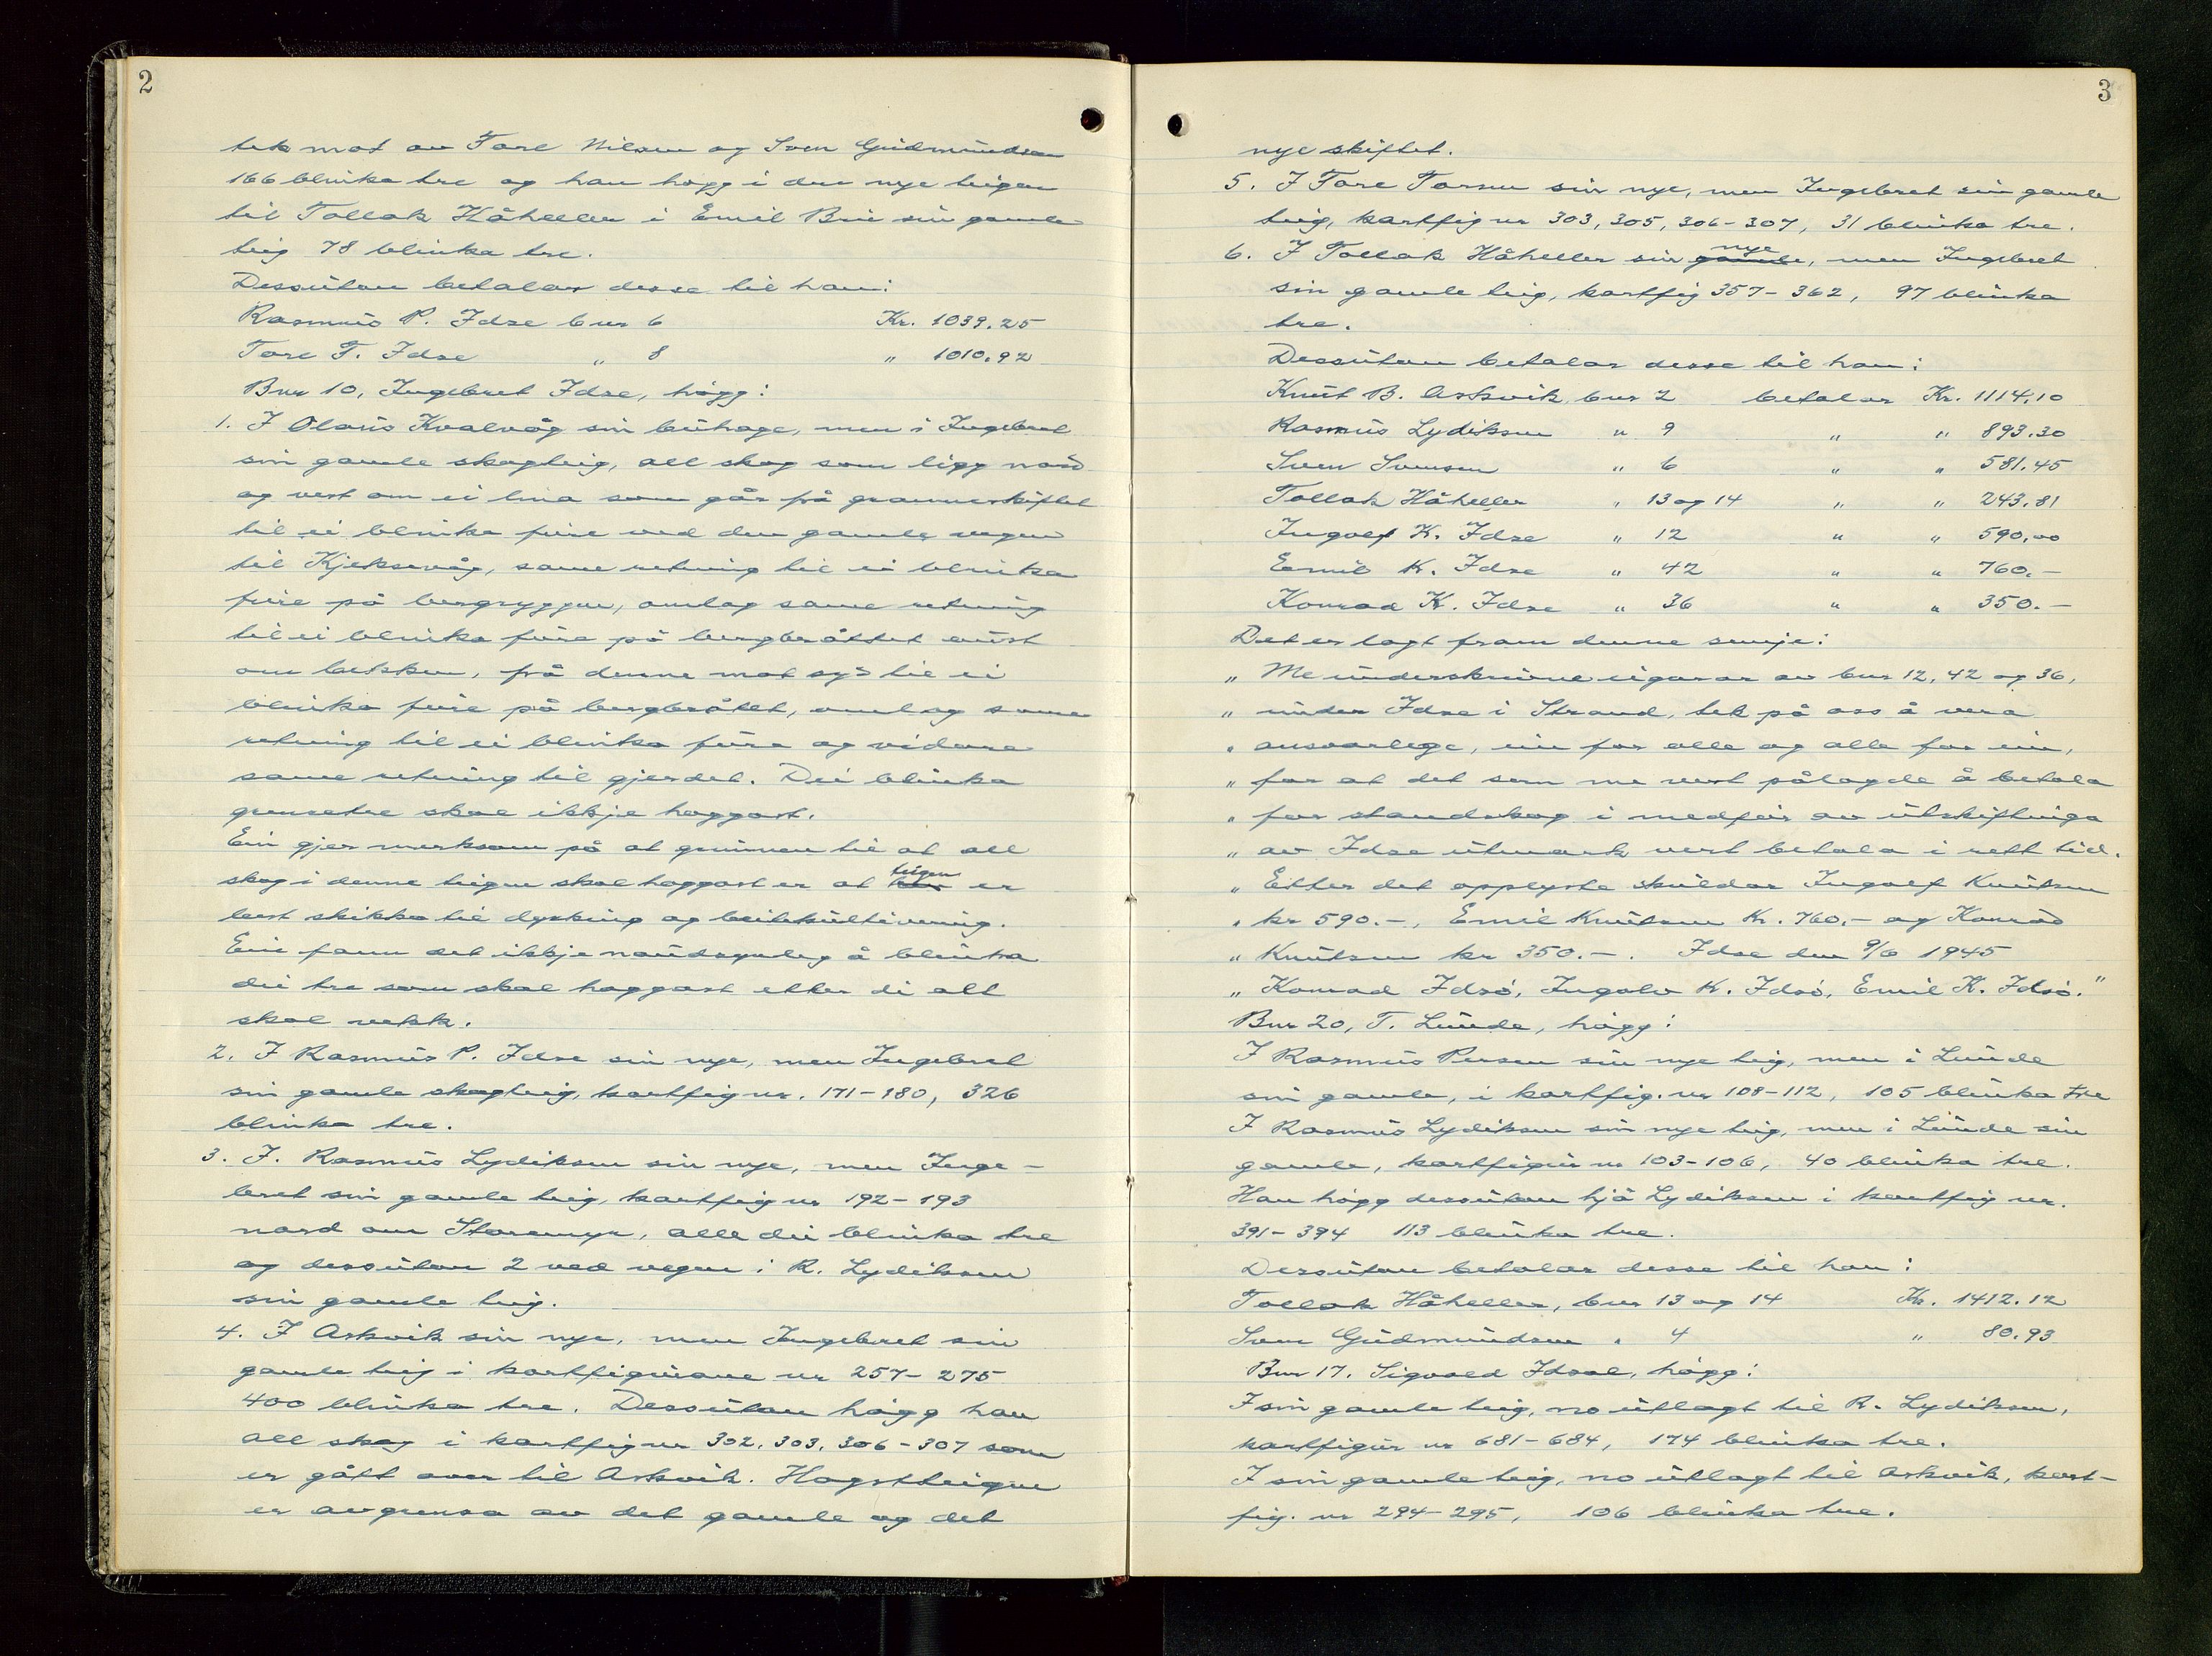 2
tek mot av Tore Nilsen og Sven Gudmundsen
166 blinka tre og han høgg i den nye teigen
til Tollak Håheller i Emil Brui sin gamle
teig 78 blinka tre.
Dessutan betalar desse til han:
Rasmus P. Idse bnr 6 Kr. 1039.25
Tore T. Idse " 8 " 1010.92
Bnr 10, Ingebret Idse, høgg:
1. I Olaus Kvalvåg sin buhage, men i Ingebret
sin gamle skogteig, all skog som ligg nord
og vest om ei lina som går på granneskiftet
til ei blinka fure ved den gamle vegen
til Kjeksevåg, same retning til ei blinka
fure på bergryggen, omlag same retning
til ei blinka fure på bergbrøttet aust
om bekken, frå denne mot syd til ei
blinka fure på bergbråtet, omlag same
retning til ei blinka fure og vidare
same retning til gjerdet. Dei blinka
grensetre skal ikkje hoggast.
Ein gjer merksam på at grunnen til at all
skog i denne teigen skal hoggast er at teigen er
best skikka til dyrking og beitekultivering.
Ein fann det ikkje naudsynleg å blinka
dei tre som skal hoggast etter di alt
skal vekk.
2. I Rasmus P. Idse sin nye, men Ingebret
sin gamle skogteig, kartfig nr. 171-180, 326
blinka tre.
3. I. Rasmus Lydiksen sin nye, men Inge-
bret sin gamle teig, kartfig nr 192-193
nord om Storemyr, alle dei blinka tre
og dessutan 2 ved vegen i R. Lydiksen
sin gamle teig.
4. I Askvik sin nye, men Ingebret sin
gamle teig i kartfigurane nr 257-275
400 blinka tre. Dessutan høgg han
all skog i kartfig nr 302, 303, 306-307 som
er gått over til Askvik. Hogstteigen
er avgrensa av det gamle og det
3
nye skiftet.
5. I Tore Torsen sin nye, men Ingebret sin gamle
teig, kartfig nr 303, 305, 306-307, 31 blinka tre.
6. I Tollak Håheller sin gamle nye, men Ingebret
sin gamle teig, kartfig 357-362, 97 blinka
tre.
Dessutan betalar desse til han:
Knut B. Askvik, bnr 2 betalar Kr. 1114.10
Rasmus Lydiksen " 9 " " 893.30
Sven Svensen " 6 " " 581.45
Tollak Håheller " 13 og 14 " " 243.81
Ingolf K. Idse " 12 " " 590,00
Emil K. Idse " 42 " " 760.-
Konrad K. Idse " 36 " " 350.-
Det er lagt fram denne semje:
" Me underskrivne eigarar av bnr 12, 42 og 36,
" under Idse i Strand, tek på oss å vera
" ansvarlege, ein for alle og alle for ein,
" for at det som me vert pålagde å betala
" for standskog i medfør av utskiftinga
" av Idse utmark vert betala i rett tid.
" Etter det opplyste skuldar Ingolf Knutsen
" kr 590.-, Emil Knutsen Kr. 760.- og Konrad
" Knutsen kr 350.-. Idse den 9/6 1945
" Konrad Idsö, Ingolv K. Idsö, Emil K. Idsö."
Bnr 20, T. Lunde, høgg:
I Rasmus Persen sin nye teig, men i Lunde
sin gamle, i kartfig. nr 108-112, 105 blinka tre
I Rasmus Lydiksen sin nye teig, men i Lunde sin
gamle, kartfigur nr 103-106, 40 blinka tre.
Han høgg dessutan hjå Lydiksen i kartfig nr.
391-394 113 blinka tre.
Dessutan betalar desse til han:
Tollak Håheller, bnr 13 og 14 Kr. 1412.12
Sven Gudmundsen " 4 " 80.93
Bnr 17. Sigvald Idsal, høgg:
I sin gamle teig, no utlagt til R. Lydiksen,
kartfigur nr 681-684, 174 blinka tre.
I sin gamle teig, no utlagt til Askvik, kart-
fig. nr 294-295, 106 blinka tre.